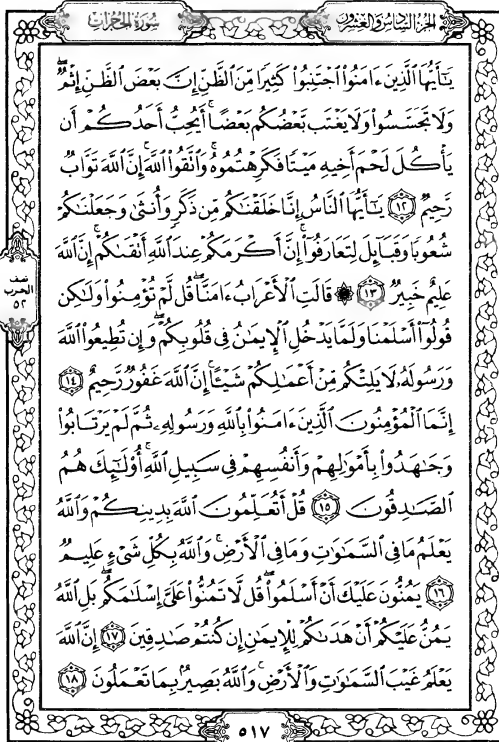 الجزء السادس والعشرون
سورة الحجرات
يَـٰٓأَيُّهَا ٱلَّذِينَ ءَامَنُوا۟ ٱجْتَنِبُوا۟ كَثِيرًا مِّنَ ٱلظَّنِّ إِنَّ بَعْضَ ٱلظَّنِّ إِثْمٌ ۖ
وَلَا تَجَسَّسُوا۟ وَلَا يَغْتَب بَّعْضُكُم بَعْضًا ۚ أَيُحِبُّ أَحَدُكُمْ أَن
يَأْكُلَ لَحْمَ أَخِيهِ مَيْتًا فَكَرِهْتُمُوهُ ۚ وَٱتَّقُوا۟ ٱللَّهَ ۚ إِنَّ ٱللَّهَ تَوَّابٌ
رَّحِيمٌ ١٢ يَـٰٓأَيُّهَا ٱلنَّاسُ إِنَّا خَلَقْنَـٰكُم مِّن ذَكَرٍ وَأُنثَىٰ وَجَعَلْنَـٰكُمْ
شُعُوبًا وَقَبَآئِلَ لِتَعَارَفُوٓا۟ ۚ إِنَّ أَكْرَمَكُمْ عِندَ ٱللَّهِ أَتْقَىٰكُمْ ۚ إِنَّ ٱللَّهَ
عَلِيمٌ خَبِيرٌ ١٣ ۞ قَالَتِ ٱلْأَعْرَابُ ءَامَنَّا ۖ قُل لَّمْ تُؤْمِنُوا۟ وَلَـٰكِن
قُولُوٓا۟ أَسْلَمْنَا وَلَمَّا يَدْخُلِ ٱلْإِيمَـٰنُ فِى قُلُوبِكُمْ ۖ وَإِن تُطِيعُوا۟ ٱللَّهَ
وَرَسُولَهُۥ لَا يَلِتْكُم مِّنْ أَعْمَـٰلِكُمْ شَيْـًٔا ۚ إِنَّ ٱللَّهَ غَفُورٌ رَّحِيمٌ ١٤
إِنَّمَا ٱلْمُؤْمِنُونَ ٱلَّذِينَ ءَامَنُوا۟ بِٱللَّهِ وَرَسُولِهِۦ ثُمَّ لَمْ يَرْتَابُوا۟
وَجَـٰهَدُوا۟ بِأَمْوَٰلِهِمْ وَأَنفُسِهِمْ فِى سَبِيلِ ٱللَّهِ ۚ أُو۟لَـٰٓئِكَ هُمُ
ٱلصَّـٰدِقُونَ ١٥ قُلْ أَتُعَلِّمُونَ ٱللَّهَ بِدِينِكُمْ وَٱللَّهُ
يَعْلَمُ مَا فِى ٱلسَّمَـٰوَٰتِ وَمَا فِى ٱلْأَرْضِ ۚ وَٱللَّهُ بِكُلِّ شَىْءٍ عَلِيمٌ
١٦ يَمُنُّونَ عَلَيْكَ أَنْ أَسْلَمُوا۟ ۖ قُل لَّا تَمُنُّوا۟ عَلَىَّ إِسْلَـٰمَكُم ۖ بَلِ ٱللَّهُ
يَمُنُّ عَلَيْكُمْ أَنْ هَدَىٰكُمْ لِلْإِيمَـٰنِ إِن كُنتُمْ صَـٰدِقِينَ ١٧ إِنَّ ٱللَّهَ
يَعْلَمُ غَيْبَ ٱلسَّمَـٰوَٰتِ وَٱلْأَرْضِ ۚ وَٱللَّهُ بَصِيرٌۢ بِمَا تَعْمَلُونَ ١٨
نصف
الحزب
٥٢
٥١٧